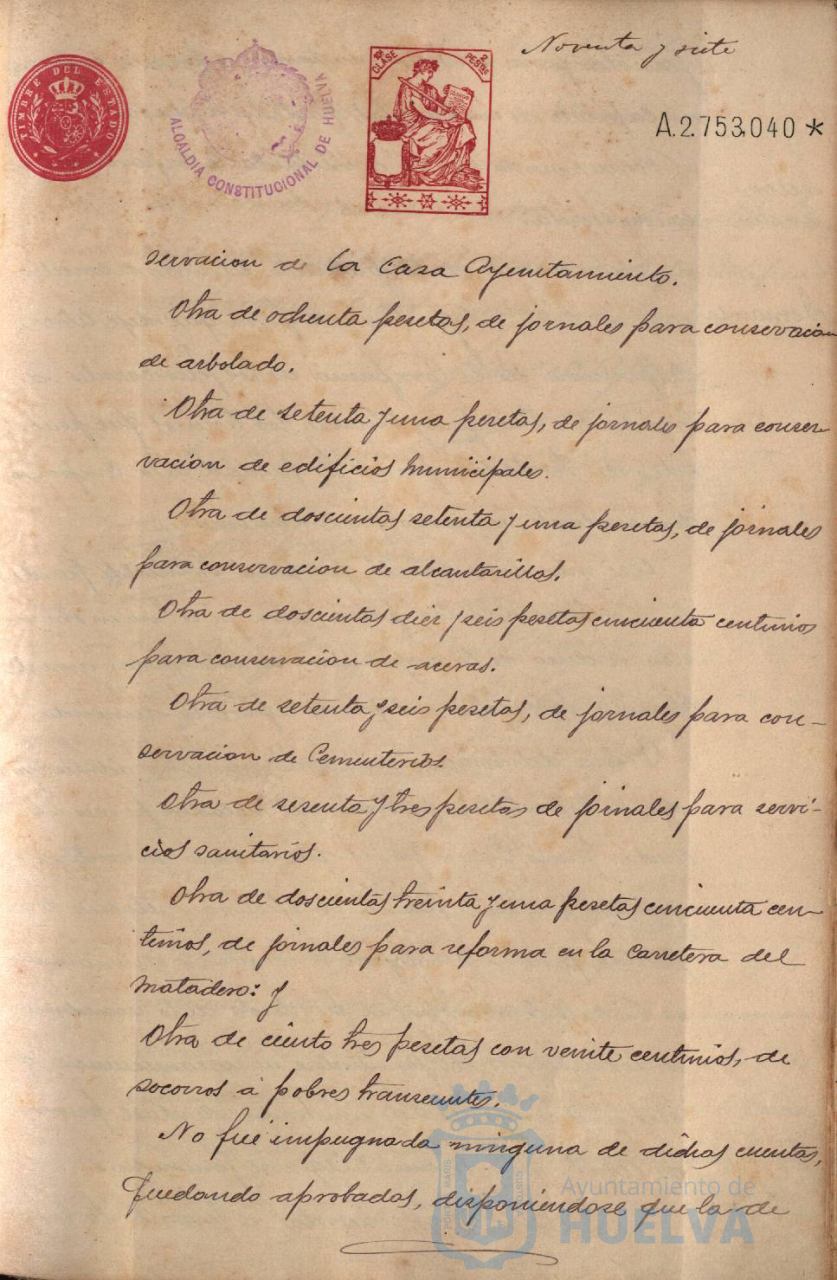 Noventa y siete
TIMBRE DEL ESTADO
ALCALDIA CONSTITUCIONAL DE HUELVA
10ª CLASE 2 PESTAS
A.2.753.040 *
servacion de la Casa Ayuntamiento.
Otra de ochenta pesetas, de jornales para conservacion
de arbolado.
Otra de setenta y una pesetas, de jornales para conser-
vacion de edificios municipales.
Otra de doscientas setenta y una pesetas, de jornales
para conservacion de alcantarillas.
Otra de doscientas diez y seis pesetas cincuenta centimos
para conservacion de aceras.
Otra de setenta y seis pesetas, de jornales para con-
servacion de Cementerios.
Otra de sesenta y tres pesetas de jornales para servi-
cios sanitarios.
Otra de doscientas treinta y una pesetas cincuenta cen-
timos, de jornales para reforma en la Carretera del
Matadero: y
Otra de ciento tres pesetas con veinte centimos, de
socorros á pobres transeuntes.
No fué impugnada ninguna de dichas cuentas,
quedando aprobadas, disponiendose que la de
Ayuntamiento de
HUELVA